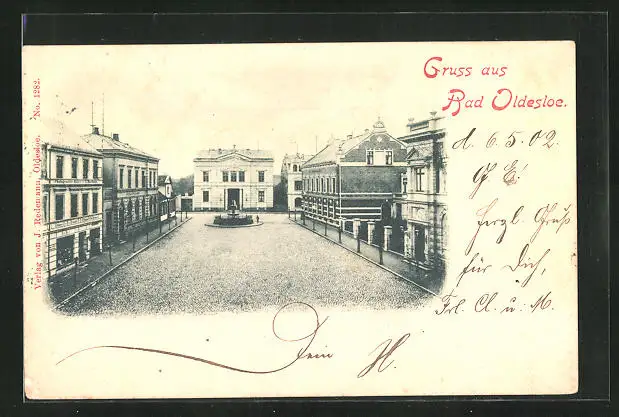 Gruss aus
Bad Oldesloe.
Verlag von J. Redemann, Oldesloe. No. 1282.
d. 6.5.02.
herzl. Gruß
für Dich,
Frl. Cl. u. M.
Dein H.